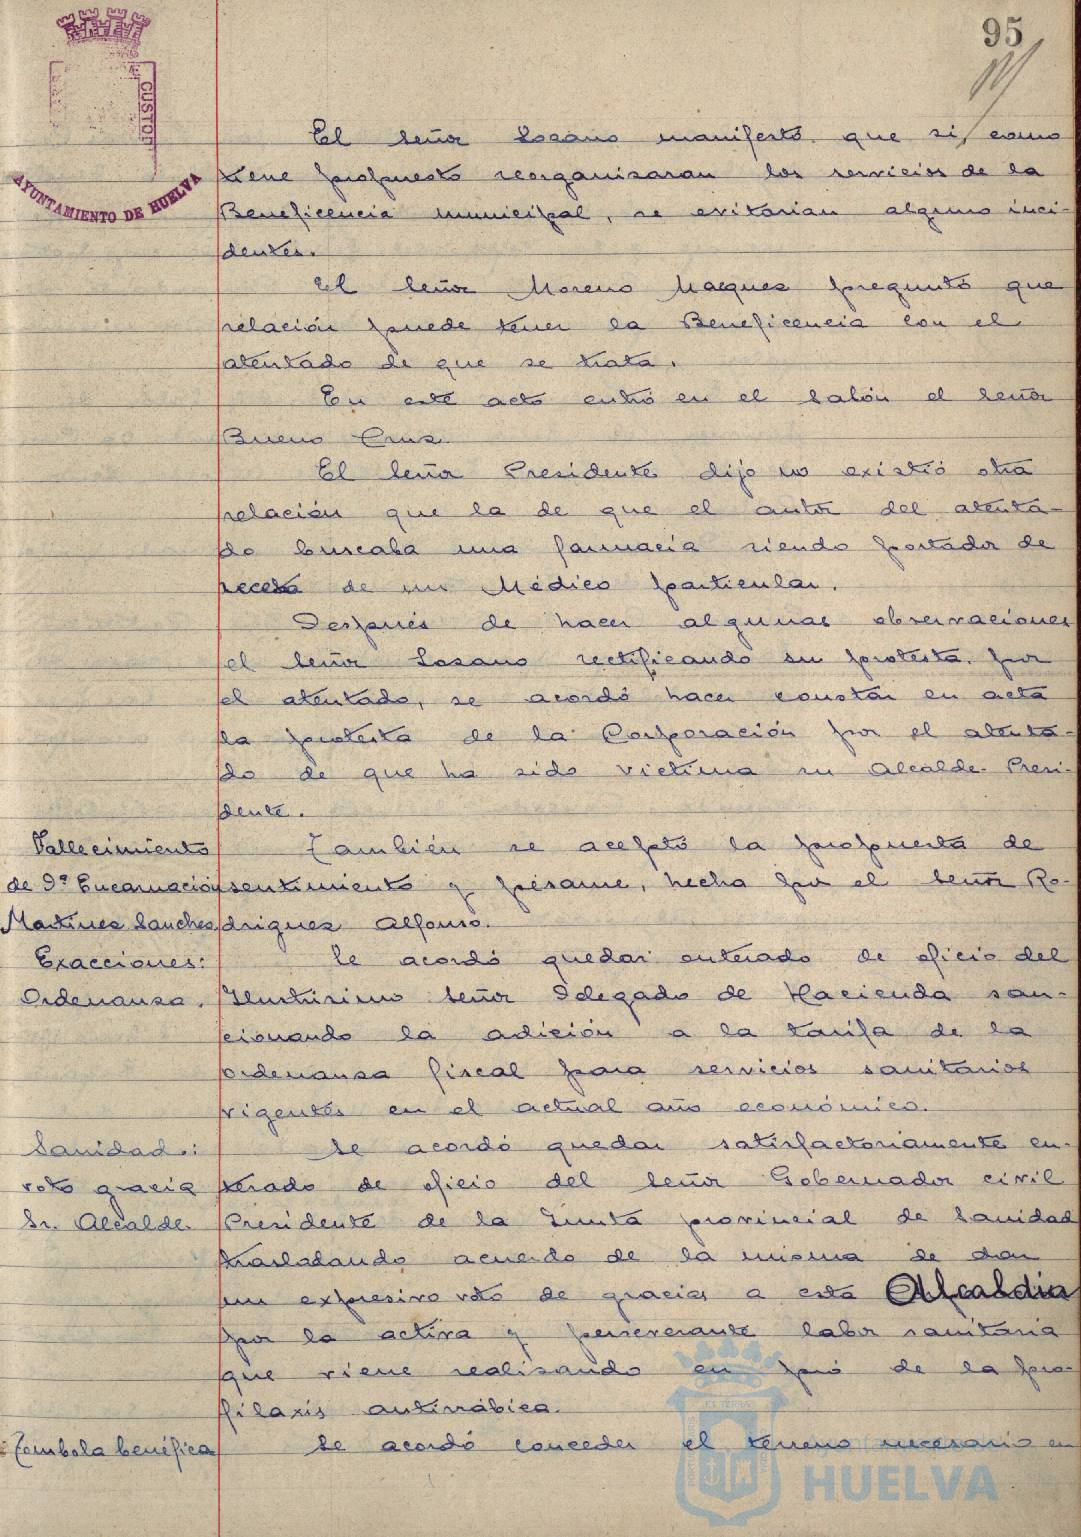 95
CUSTOD
AYUNTAMIENTO DE HUELVA
El Señor Lozano manifestó que si, como
tiene propuesto reorganizaran los servicios de la
Beneficencia municipal, se evitarian algunos inci-
dentes.
El Señor Moreno Marquez preguntó que
relación puede tener la Beneficencia con el
atentado de que se trata.
En este acto entró en el Salón el Señor
Bueno Cruz.
El Señor Presidente dijo no existió otra
relación que la de que el autor del atenta-
do buscaba una farmacia siendo portador de
receta de un Médico particular.
Después de hacer algunas observaciones
el Señor Lozano rectificando su protesta por
el atentado, se acordó hacer constar en acta
la protesta de la Corporación por el atenta-
do de que ha sido victima su Alcalde-Presi-
dente.
Fallecimiento
de Dª Encarnación
Martinez Sanchez
También se aceptó la propuesta de
sentimiento y pésame, hecha por el Señor Ro-
driguez Alfonso.
Exacciones:
Ordenanza.
Se acordó quedar enterado de oficio del
Ilustrisimo Señor Delegado de Hacienda san-
cionando la adición a la tarifa de la
ordenanza fiscal para servicios sanitarios
vigentes en el actual año económico.
Sanidad:
voto gracia
Sr. Alcalde
Se acordó quedar satisfactoriamente en-
terado de oficio del Señor Gobernador civil
Presidente de la Junta provincial de Sanidad
trasladando acuerdo de la misma de dar
un expresivo voto de gracias a esta Alcaldia
por la activa y perseverante labor sanitaria
que viene realizando en pró de la pro-
filaxis antirrábica.
Tombola benéfica
Se acordó conceder el terreno necesario en
HUELVA